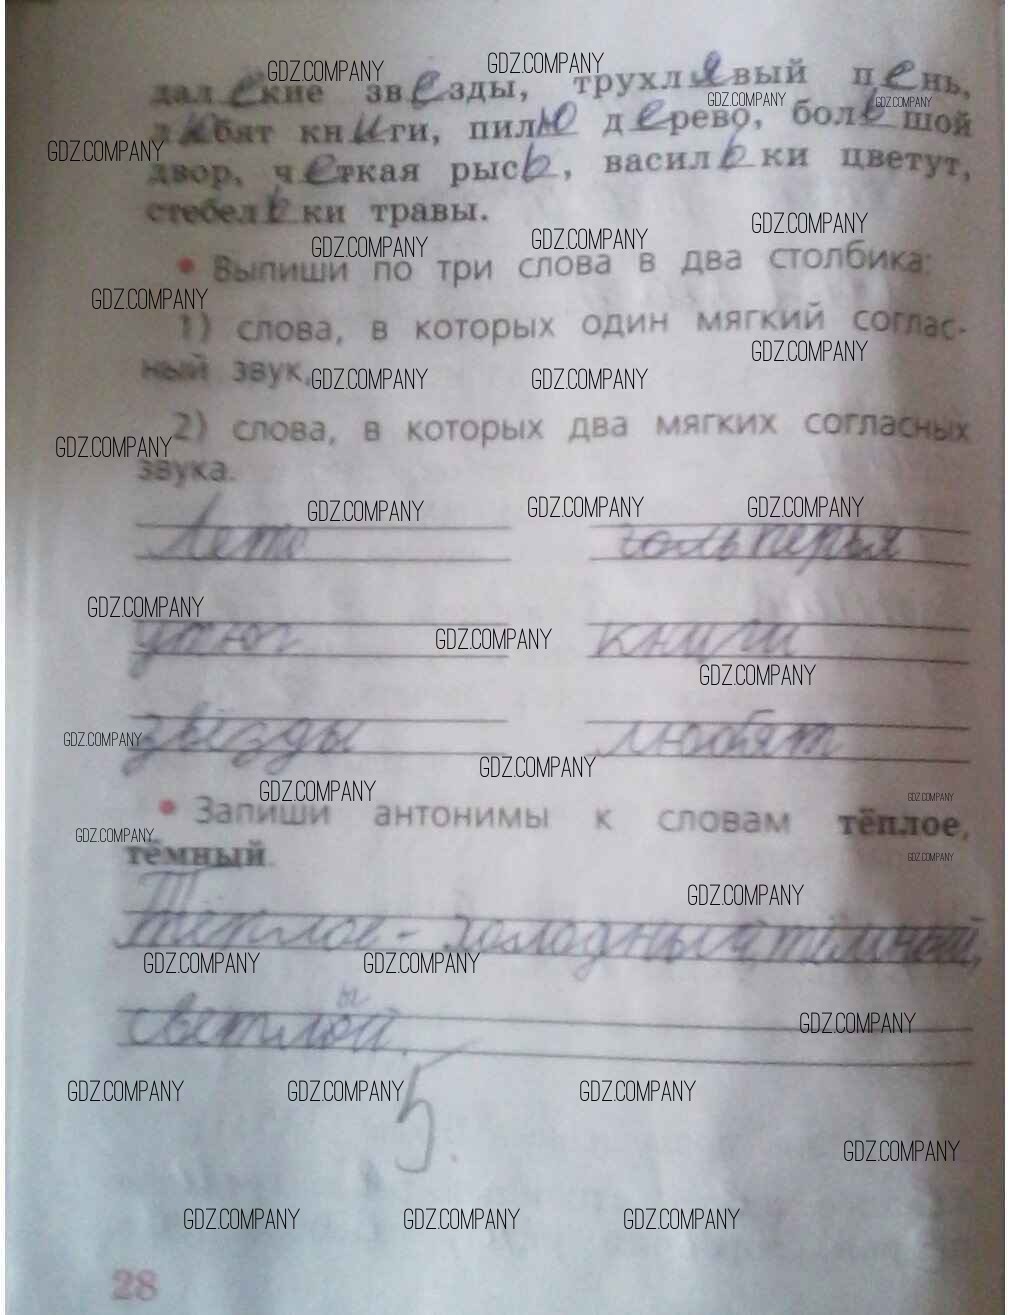 GDZ.COMPANY GDZ.COMPANY
далекие звезды, трухлявый пень,
GDZ.COMPANY GDZ.COMPANY
любят книги, пилю дерево, большой
GDZ.COMPANY
двор, четкая рысь, васильки цветут,
стебельки травы.
GDZ.COMPANY
GDZ.COMPANY GDZ.COMPANY
• Выпиши по три слова в два столбика:
GDZ.COMPANY
1) слова, в которых один мягкий соглас-
GDZ.COMPANY
ный звук,
GDZ.COMPANY GDZ.COMPANY
2) слова, в которых два мягких согласных
GDZ.COMPANY
звука.
GDZ.COMPANY GDZ.COMPANY GDZ.COMPANY
Лето перья
GDZ.COMPANY
утюг книги
GDZ.COMPANY
GDZ.COMPANY
звёзды любят
GDZ.COMPANY
GDZ.COMPANY
GDZ.COMPANY
GDZ.COMPANY
• Запиши антонимы к словам тёплое,
GDZ.COMPANY
тёмный.
GDZ.COMPANY
GDZ.COMPANY
Тёплое - холодный, тёмный,
GDZ.COMPANY GDZ.COMPANY
ы
светлой.
GDZ.COMPANY
GDZ.COMPANY GDZ.COMPANY GDZ.COMPANY
5.
GDZ.COMPANY
GDZ.COMPANY GDZ.COMPANY GDZ.COMPANY
28